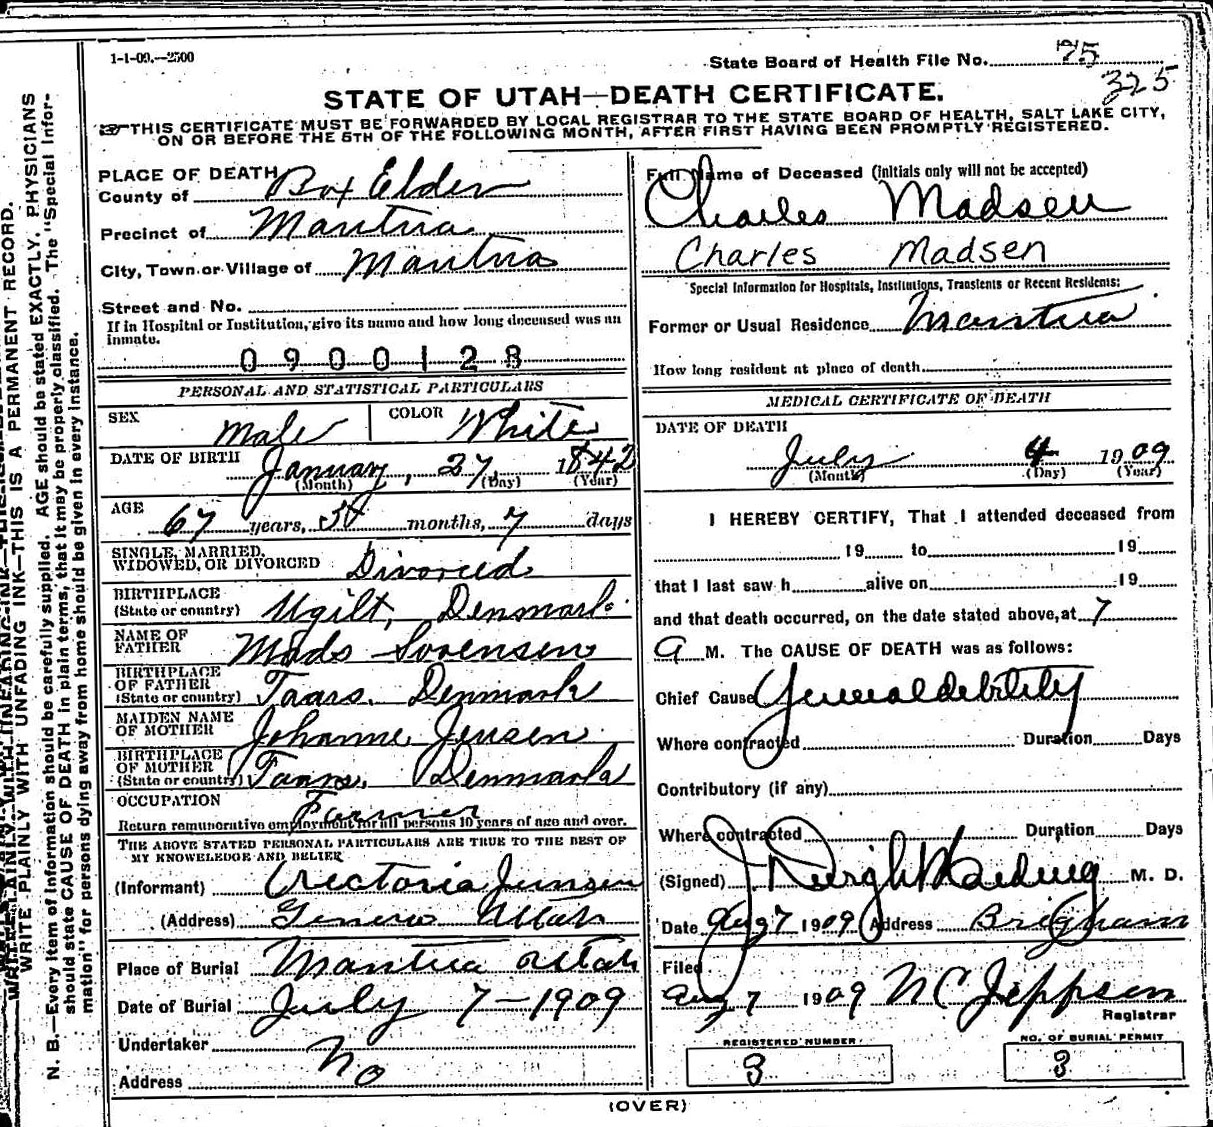 1-1-09.—2500
State Board of Health File No. 75
325
STATE OF UTAH—DEATH CERTIFICATE.
THIS CERTIFICATE MUST BE FORWARDED BY LOCAL REGISTRAR TO THE STATE BOARD OF HEALTH, SALT LAKE CITY,
ON OR BEFORE THE 5TH OF THE FOLLOWING MONTH, AFTER FIRST HAVING BEEN PROMPTLY REGISTERED.
PLACE OF DEATH
County of Box Elder
Precinct of Mantua
City, Town or Village of Mantua
Street and No.
If in Hospital or Institution, give its name and how long deceased was an
inmate.
0900128
PERSONAL AND STATISTICAL PARTICULARS
SEX Male COLOR White
DATE OF BIRTH January, 27, 1842
(Month) (Day) (Year)
AGE 67 years, months, 7 days
SINGLE, MARRIED,
WIDOWED, OR DIVORCED Divorced
BIRTHPLACE
(State or country) Ugilt, Denmark
NAME OF
FATHER Mads Sorensen
BIRTHPLACE
OF FATHER
(State or country) Taars, Denmark
MAIDEN NAME
OF MOTHER Johanne Jensen
BIRTHPLACE
OF MOTHER
(State or country) Taars, Denmark
OCCUPATION Farmer
Return remunerative employment for all persons 10 years of age and over.
THE ABOVE STATED PERSONAL PARTICULARS ARE TRUE TO THE BEST OF
MY KNOWLEDGE AND BELIEF
(Informant) Vectoria Jensen
(Address) Geneva Utah
Place of Burial Mantua Utah
Date of Burial July 7-1909
Undertaker No
Address
Full Name of Deceased (initials only will not be accepted)
Charles Madsen
Charles Madsen
Special Information for Hospitals, Institutions, Transients or Recent Residents:
Former or Usual Residence Mantua
How long resident at place of death
MEDICAL CERTIFICATE OF DEATH
DATE OF DEATH
July 4 1909
(Month) (Day) (Year)
I HEREBY CERTIFY, That I attended deceased from
19 to 19
that I last saw h alive on 19
and that death occurred, on the date stated above, at 7
a M. The CAUSE OF DEATH was as follows:
Chief Cause General debility
Where contracted Duration Days
Contributory (if any)
Where contracted Duration Days
(Signed) M. D.
Date Aug 7 1909 Address Brigham
Filed
Aug 7 1909 N C Jeppsen
Registrar
REGISTERED NUMBER
3
NO. OF BURIAL PERMIT
3
(OVER)
WRITE PLAINLY WITH UNFADING INK—THIS IS A PERMANENT RECORD.
N. B.—Every item of information should be carefully supplied. AGE should be stated EXACTLY. PHYSICIANS
should state CAUSE OF DEATH in plain terms, that it may be properly classified. The "Special Infor-
mation" for persons dying away from home should be given in every instance.